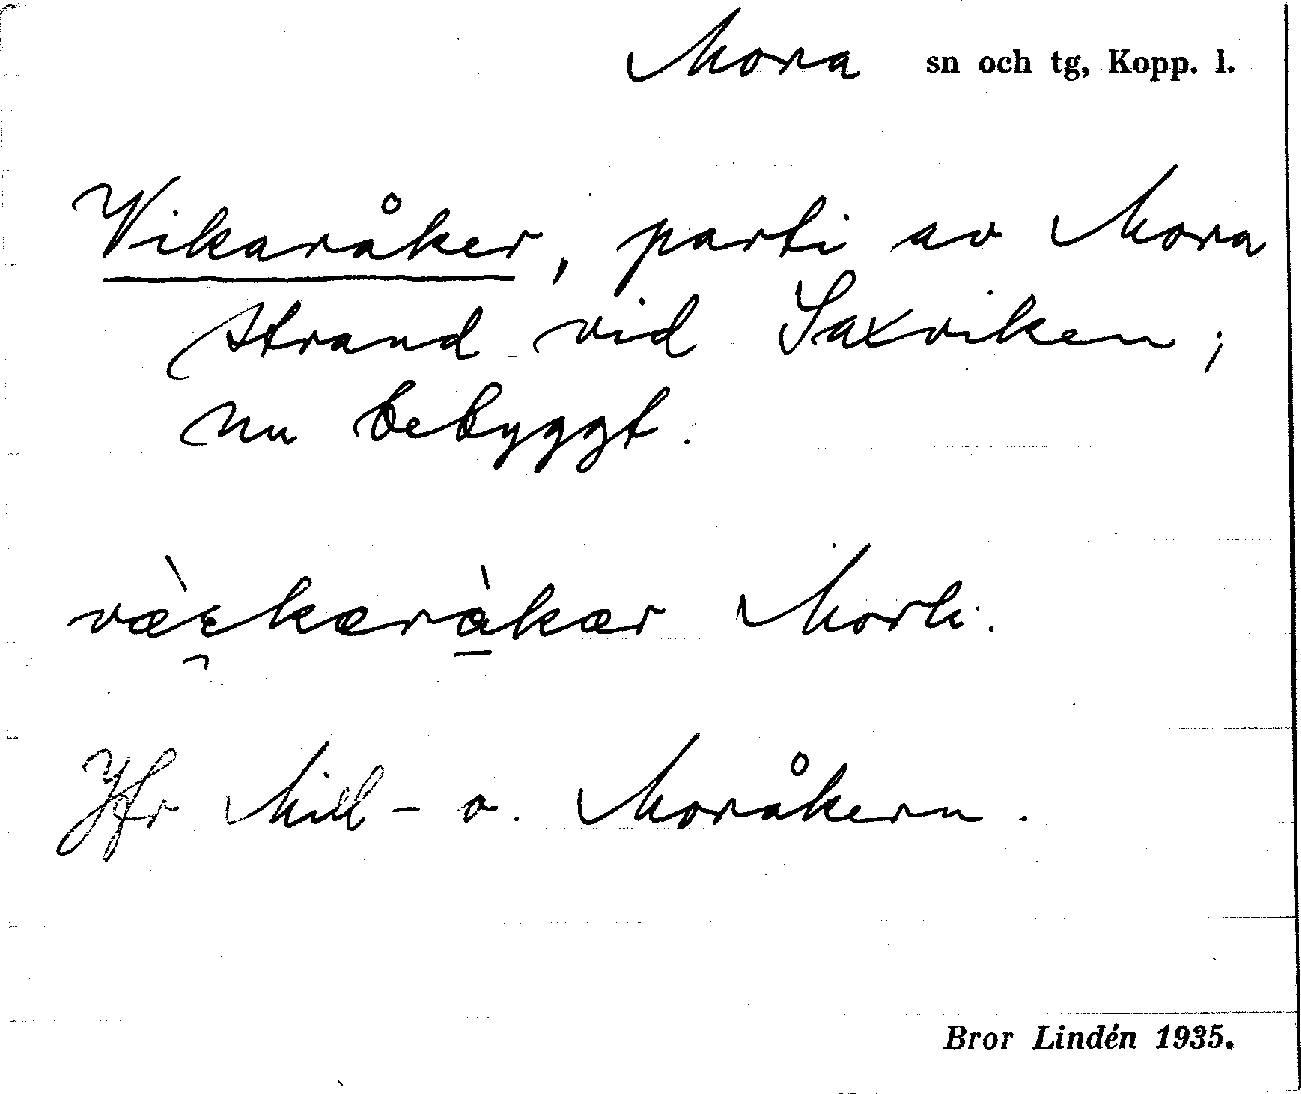 Mora sn och tg, Kopp. l.
Vikaråker, parti av Mora
strand vid Saxviken;
nu bebyggt.
væ̀ɛ̯kærà̱kær Mork.
Jfr Mill- o. Moråkern.
Bror Lindén 1935.